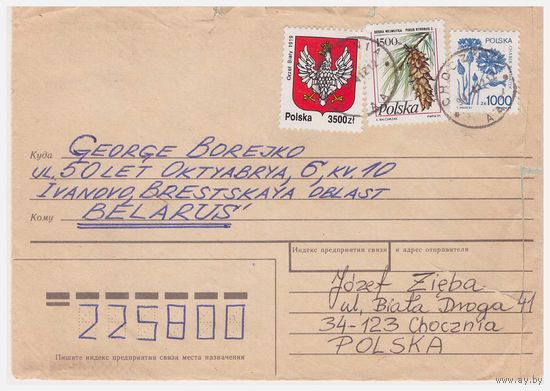 Orzeł Biały 1919
Polska 3500zł
1500zł
SOSNA WEJMUTKA PINUS STROBUS L.
Polska
POLSKA
zł 1000
CHOCZ
Куда GEORGE BOREJKO
ul. 50 LET OKTYABRYA, 6, KV. 10
IVANOVO, BRESTSKAYA OBLAST
Кому BELARUS"
Индекс предприятия связи и адрес отправителя
Józef Zięba
ul, Biała Droga 41
34-123 Chocznia
POLSKA
225800
Пишите индекс предприятия связи места назначения
www.ay.by